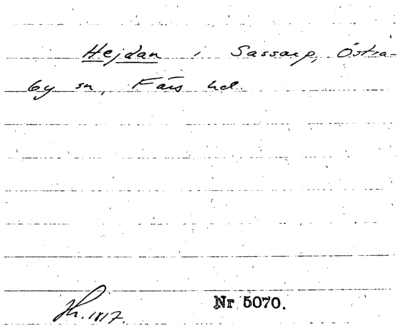 Hejdan i Sassarp, Östra-
by sn, Färs hd.
Nr 5070.
1817.